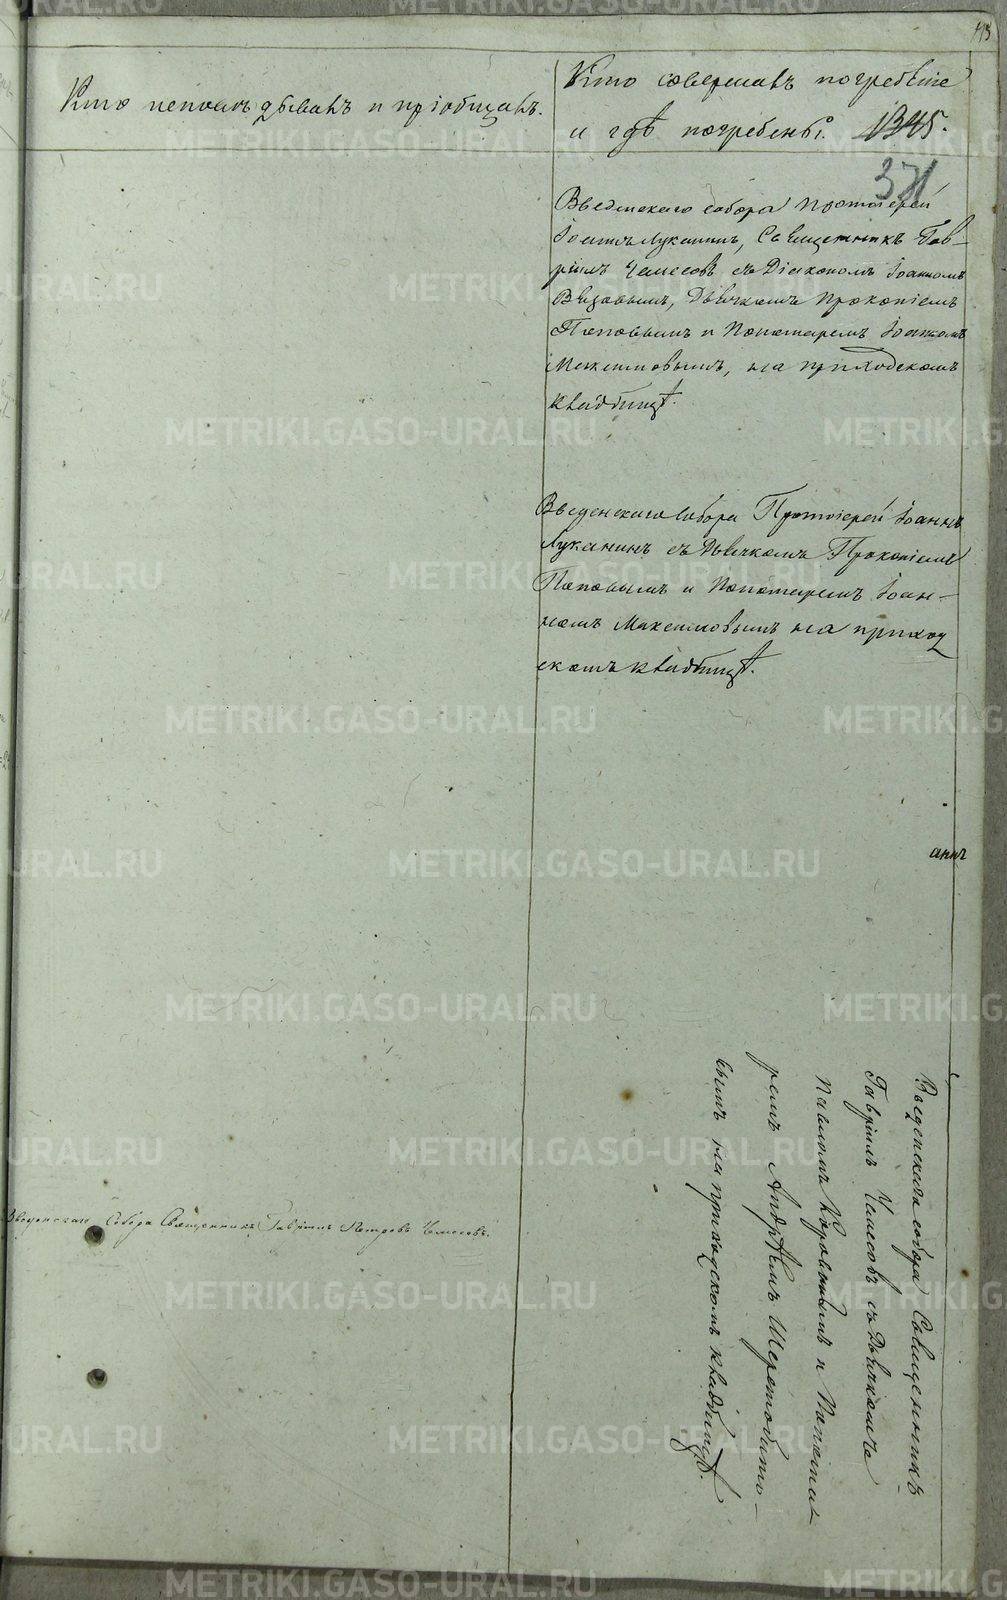 Кто исповѣдывалъ и пріобщалъ.
Кто совершалъ погребеніе
и гдѣ погребены. 1345.
371
Введенскаго собора Протоіерей
Іоаннъ Луканинъ, Священникъ Гав-
ріилъ Чемесовъ съ Діакономъ Іоанномъ
Дьячкомъ Прокопіемъ
Поповымъ и Пономаремъ Іоанномъ
Максимовымъ, на приходскомъ
кладбищѣ.
Введенскаго собора Протоіерей Іоаннъ
Луканинъ съ Дьячкомъ Прокопіемъ
Поповымъ и Пономаремъ Іоан-
номъ Максимовымъ на приход
скомъ кладбищѣ.
Введенскаго Собора Священникъ Гавріилъ Петровъ Чемесовъ.
Введенскаго собора Священникъ
Гавріилъ Чемесовъ съ Дьячкомъ
Павломъ и Понома-
ремъ Андреемъ Шерстобито-
вымъ на приходскомъ кладбищѣ.
METRIKI.GASO-URAL.RU